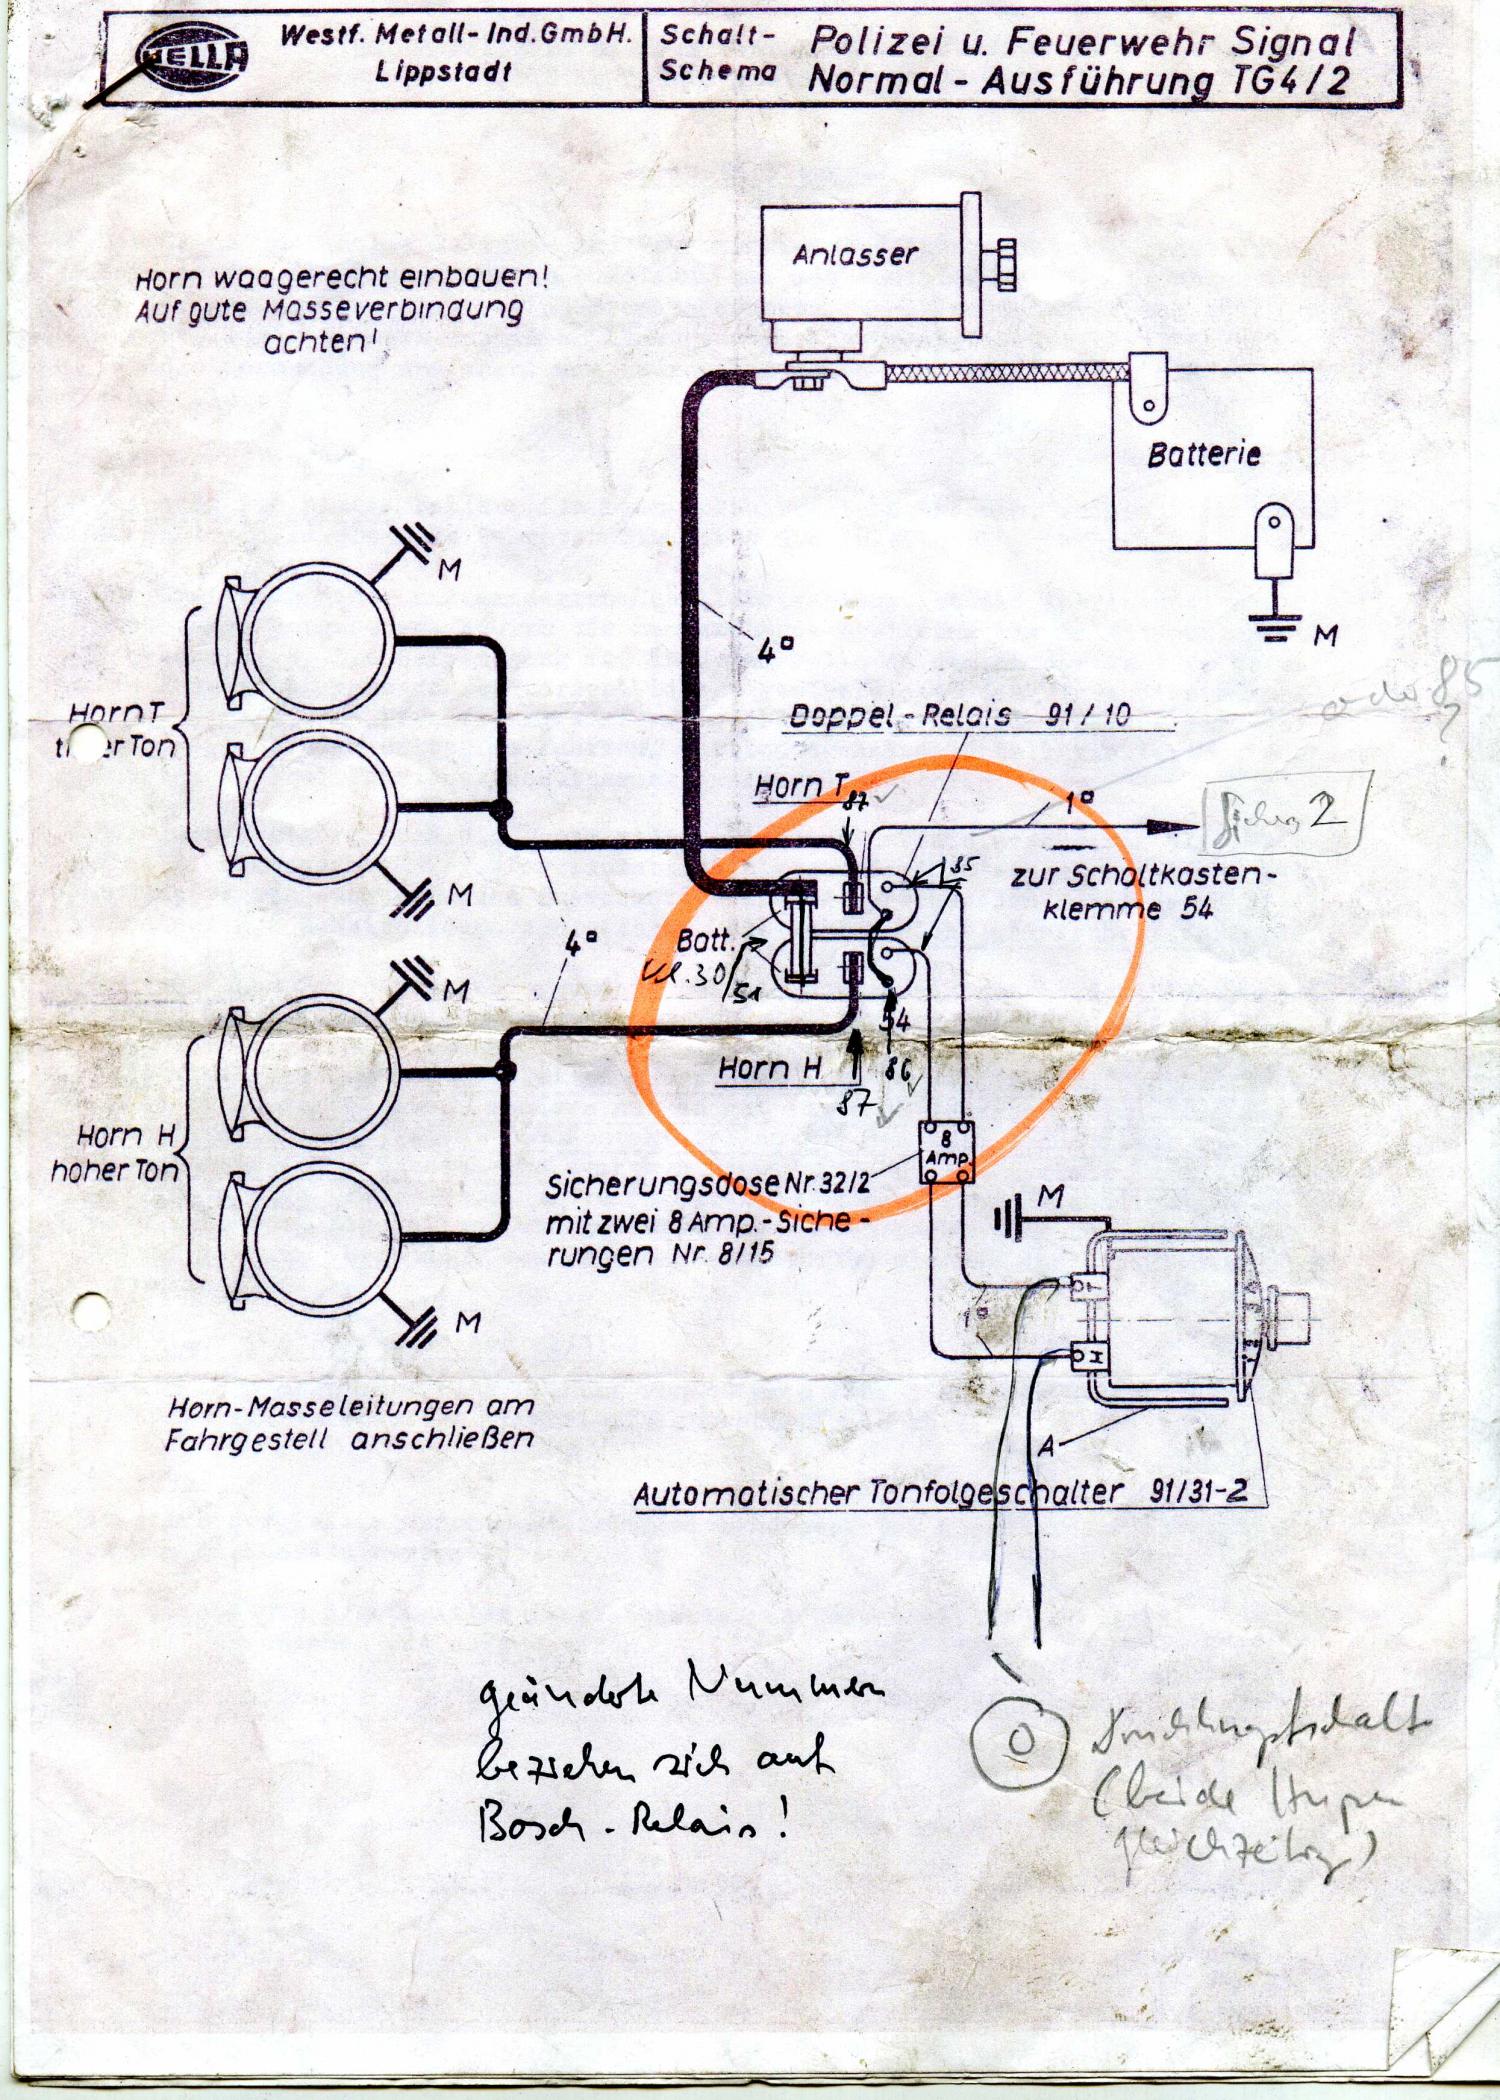 HELLA
Westf. Metall-Ind.GmbH.
Lippstadt
Schalt-
Schema
Polizei u. Feuerwehr Signal
Normal-Ausführung TG4/2
Horn waagerecht einbauen!
Auf gute Masseverbindung
achten!
Anlasser
Batterie
M
M
4▫
oder 85
?
Doppel-Relais 91/10
Horn T
tiefer Ton
Horn T
87
1▫
2
zur Schaltkasten-
klemme 54
85
M
4▫
Batt.
Kl.30/51
M
54
Horn H
86
87
Horn H
hoher Ton
8
Amp.
Sicherungsdose Nr.32/2
mit zwei 8 Amp.-Siche-
rungen Nr. 8/15
M
T
1▫
H
M
A
Horn-Masseleitungen am
Fahrgestell anschließen
Automatischer Tonfolgeschalter 91/31-2
geänderte Nummern
beziehen sich auf
Bosch-Relais!
(beide Hupen
gleichzeitig)